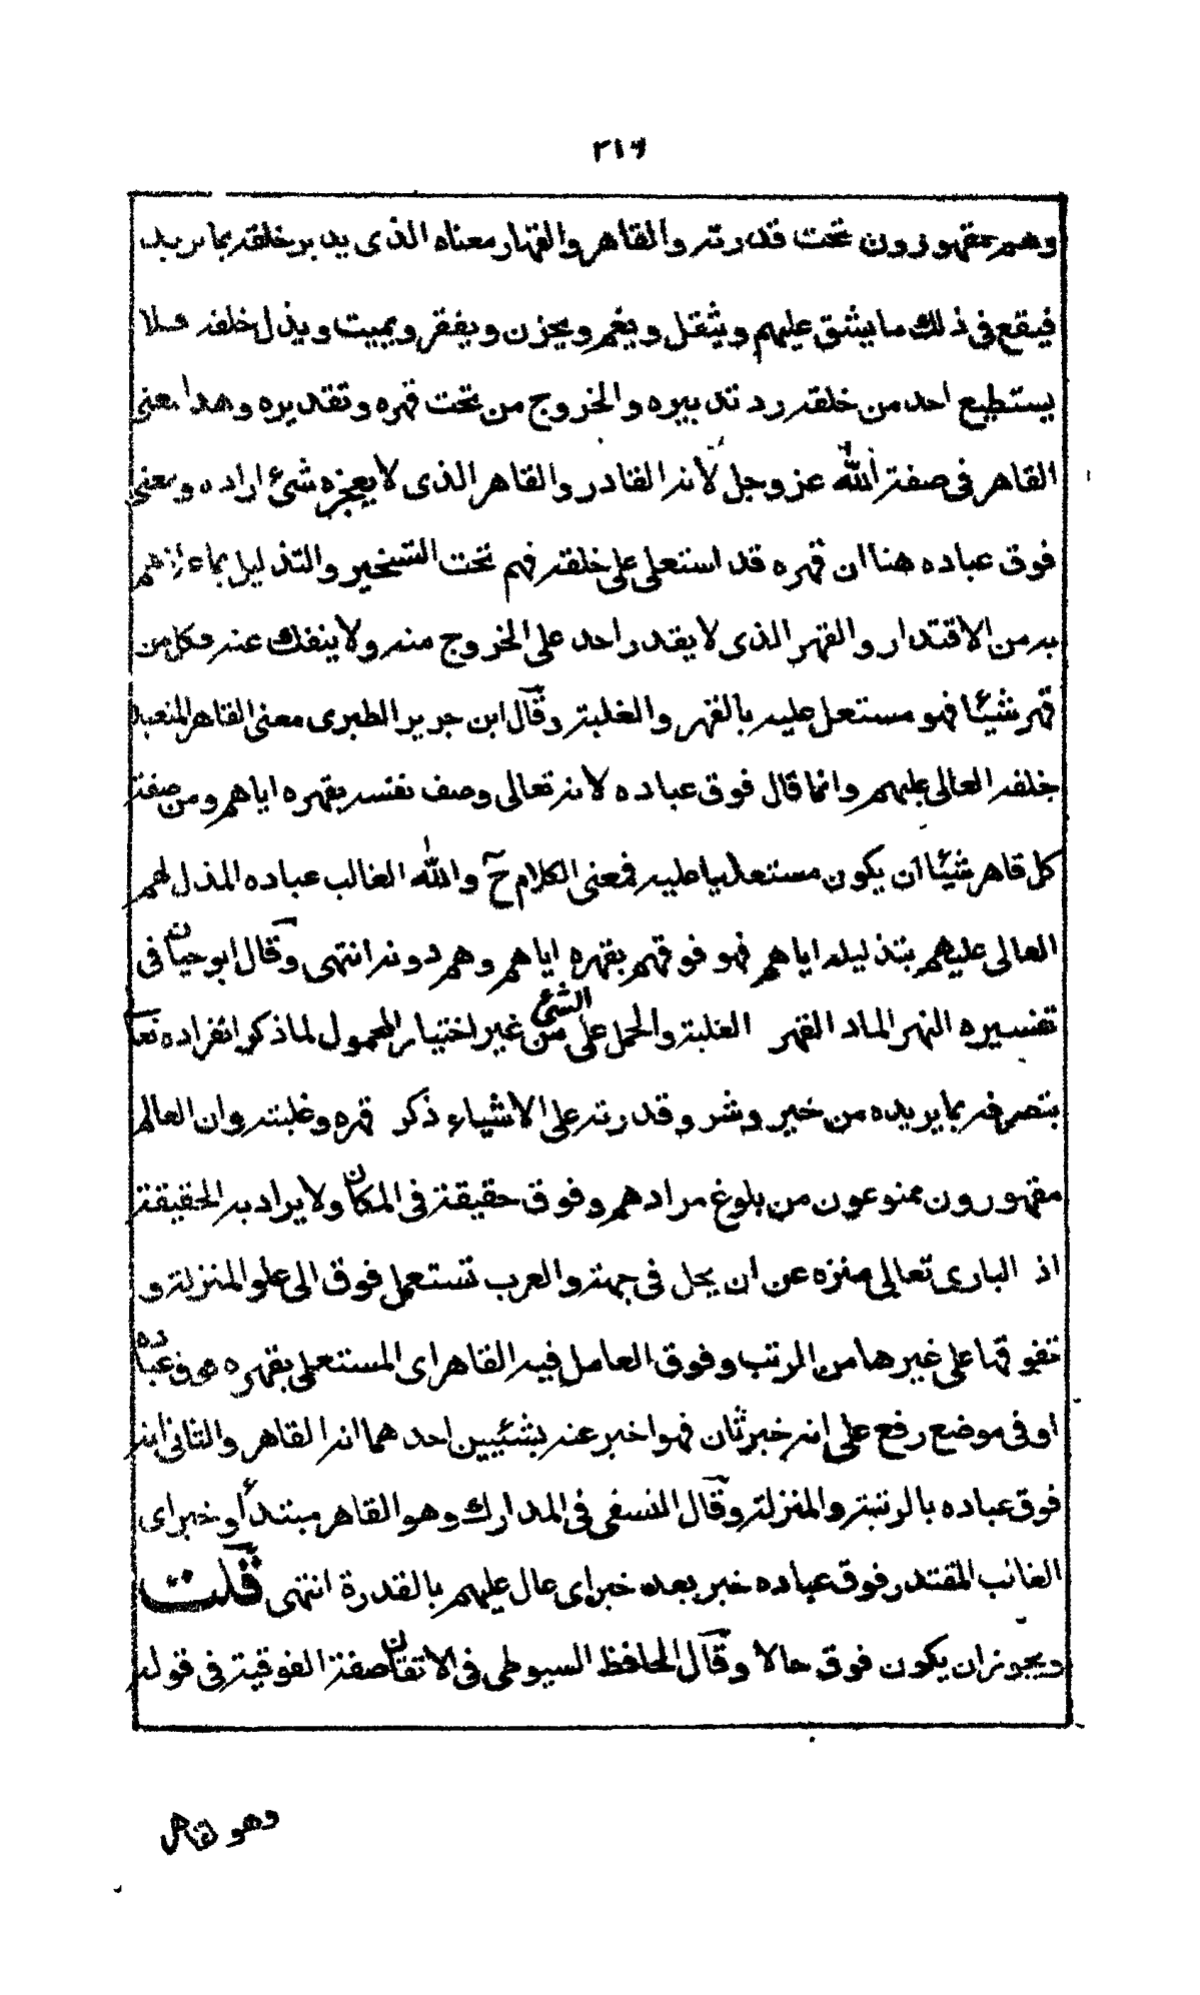 ٢١٦
وهم مقهورون تحت قدرته والقاهر والقهار معناه الذى يدبر خلقه بما يريد
فيقع فى ذلك ما يشق عليهم ويثقل ويغم ويحزن ويفقر ويميت ويذل خلقه فلا
يستطيع احد من خلقه رد تدبيره والخروج من تحت قهره وتقديره وهذا معنى
القاهر فى صفة الله عز وجل لأنه القادر والقاهر الذى لا يعجزه شئ اراده ومعنى
فوق عباده هنا ان قهره قد استعلى على خلقه فهم تحت التسخير والتذليل بما علاهم
به من الاقتدار والقهر الذى لا يقدر احد على الخروج منه ولا ينفك عنه فكل من
قهر شيئا فهو مستعل عليه بالقهر والغلبة وقال ابن جرير الطبرى معنى القاهر المتعبد
خلقه العالى عليهم وانما قال فوق عباده لانه تعالى وصف نفسه بقهره اياهم ومن صفة
كل قاهر شيئا ان يكون مستعليا عليه فمعنى الكلام ح والله الغالب عباده المذل لهم
العالى عليهم بتذليله اياهم فهو فوقهم بقهره اياهم وهم دونه انتهى وقال ابو حيان فى
تفسيره النهر الماد القهر الغلبة والحمل على الشئ من غير اختيار المحمول لما ذكر انفراده تعا
بتصرفه بما يريده من خير وشر وقدرته على الاشياء ذكر قهره وغلبته وان العالم
مقهورون ممنوعون من بلوغ مرادهم وفوق حقيقة فى المكان ولا يراد به الحقيقة
اذ البارى تعالى منزه عن ان يحل فى جهة والعرب تستعمل فوق الى علو المنزلة و
تفوقها على غيرها من الرتب وفوق العامل فيه القاهر اى المستعلى بقهره فوق عباده
او فى موضع رفع على انه خبر ثان فهو اخبر عنه بشيئين احدهما انه القاهر والثانى انه
فوق عباده بالرتبة والمنزلة وقال النسفى فى المدارك وهو القاهر مبتدأ وخبر اى
الغالب المقتدر فوق عباده خبر بعد خبر اى عال عليهم بالقدرة انتهى قلت
ويجوز ان يكون فوق حالا وقال الحافظ السيوطى فى الاتقان صفة الفوقية فى قوله
وهو القاهر